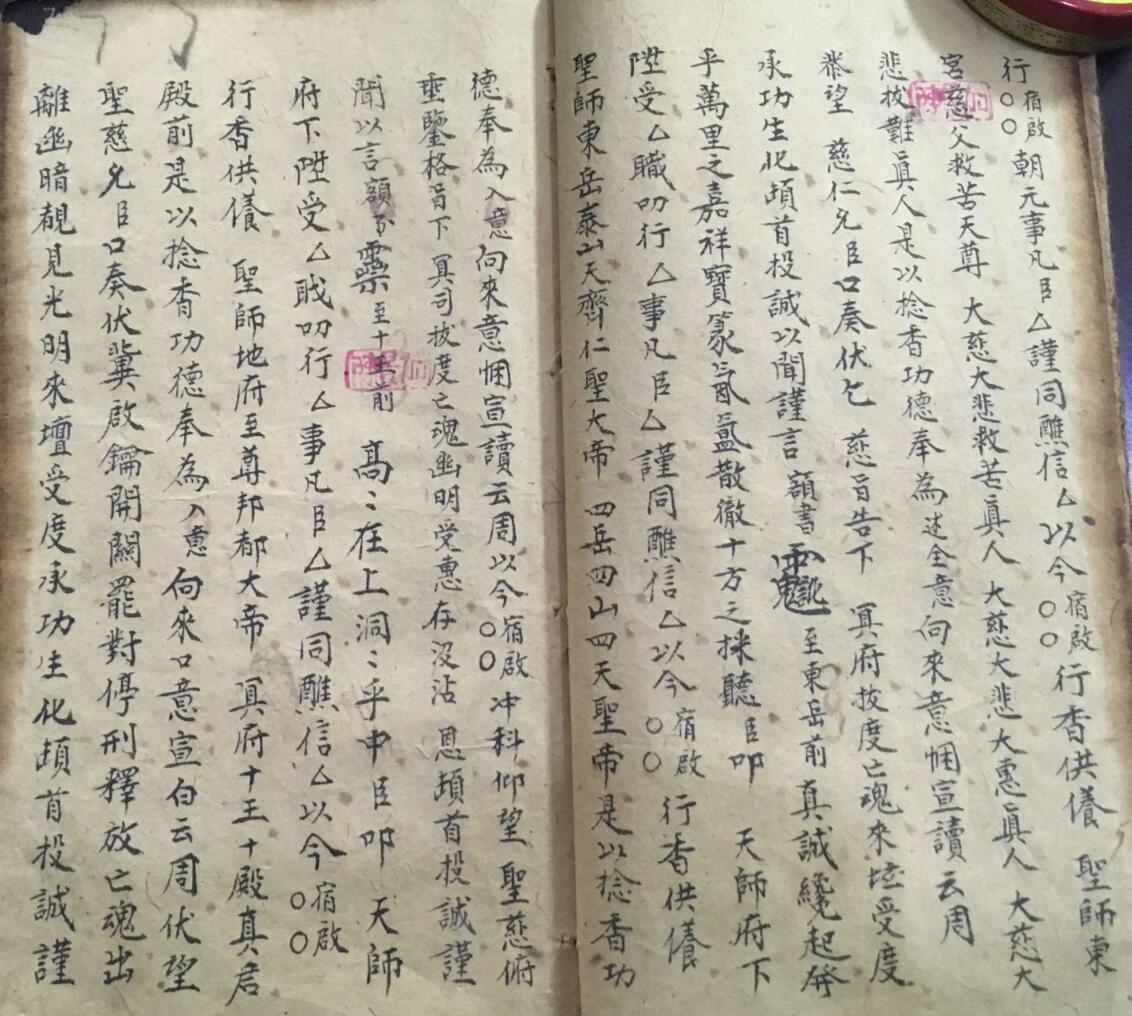 行宿啟〇〇朝元事凡臣厶謹同醮信厶以今宿啟〇〇行香供養 聖師東
宮慈父救苦天尊 大慈大悲救苦真人 大慈大悲大惠真人 大慈大
悲拔難真人是以捻香功德奉為述全意向來意悃宣讀云周
叅望 慈仁允臣口奏伏乞 慈旨告下 冥府拔度亡魂來壇受度
承功生化頓首投誠以聞謹言 額書 至東岳前 真誠纔起發
乎萬里之嘉祥寶篆氤氳散徹十方之採聽 臣叩 天師府下
陞受厶職叨行厶事凡臣厶謹同醮信厶以今宿啟〇〇行香供養
聖師東岳泰山天齊仁聖大帝 四岳四山四天聖帝是以捻香功
德奉為入意向來意悃宣讀云周以今宿啟〇〇冲科仰望 聖慈俯
垂鑒格旨下 冥司拔度亡魂幽明受惠存沒沾 恩頓首投誠謹
聞以言額書 至十王前 高〻在上洞〻乎中臣叩 天師
府下陞受厶職叨行厶事凡臣厶謹同醮信厶以今宿啟〇〇
行香供養 聖師地府至尊邦都大帝 冥府十王十殿真君
殿前是以捻香功德奉為入意向來口意宣白云周伏望
聖慈允臣口奏伏冀啟鑰開關罷對停刑釋放亡魂出
離幽暗覩見光明來壇受度承功生化頓首投誠謹